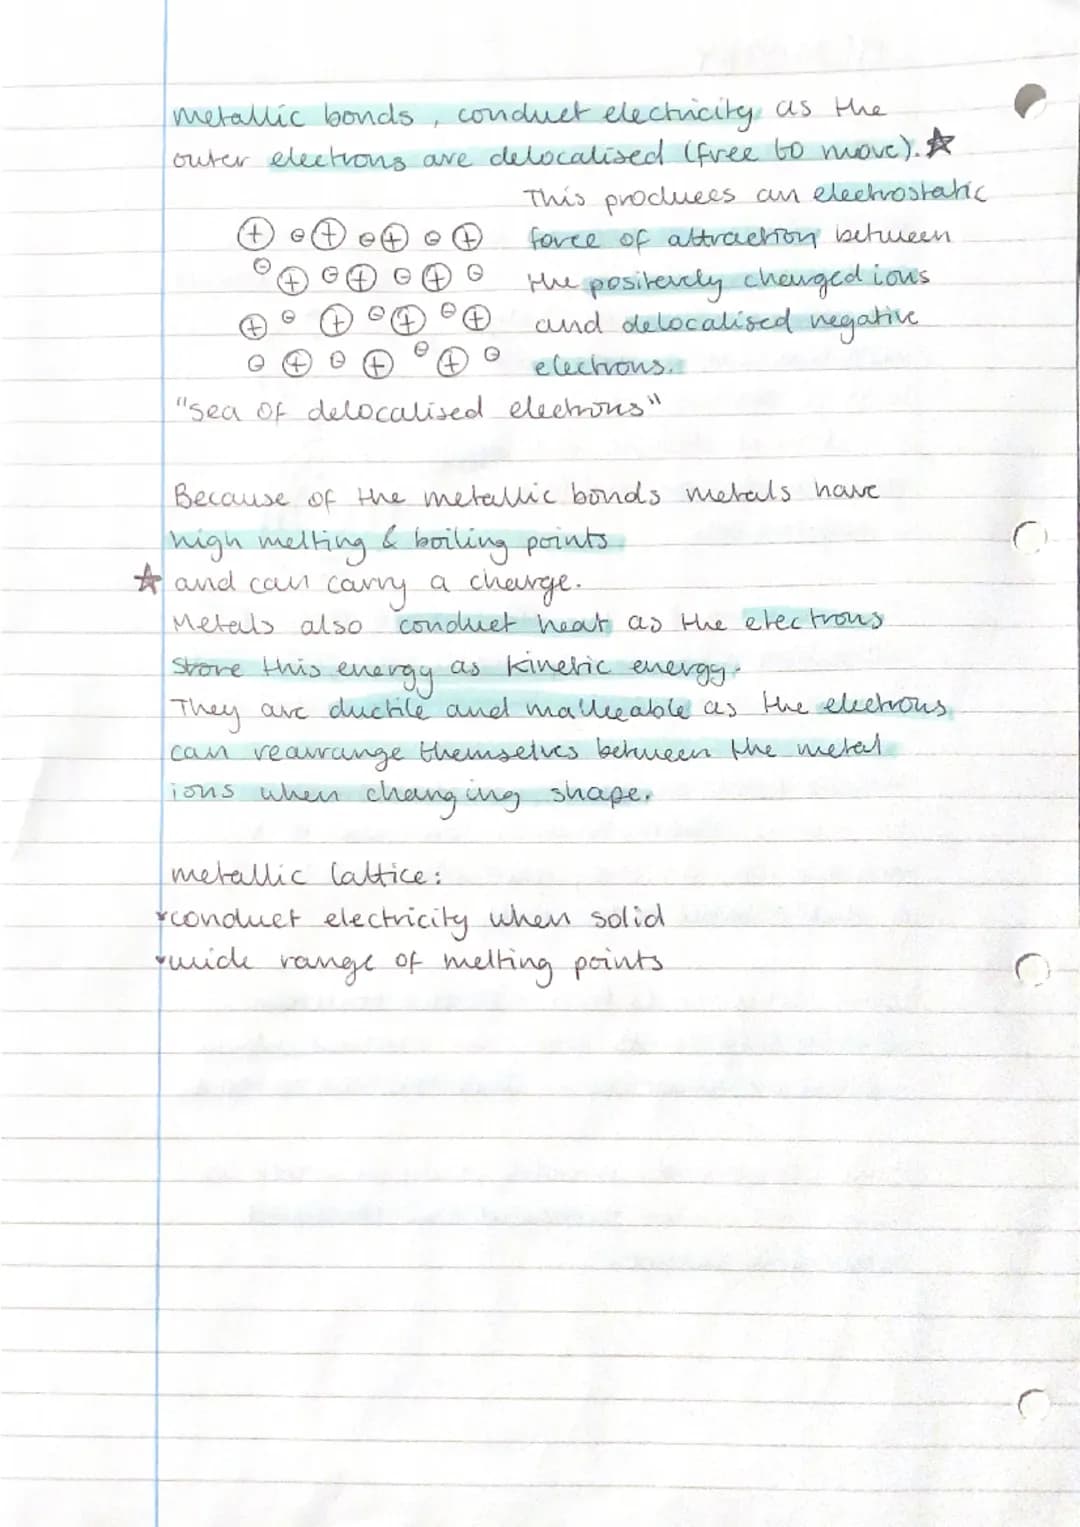 metallic bonds, conduct electricity as the
outer electrons are delocalised (free to move). ☆
This produces an electrostatic
⊕ ⊖ ⊕ ⊖ ⊕ ⊖ ⊕ force of attraction between
⊖ ⊕ ⊖ ⊕ ⊖ ⊕ ⊖ the positevely charged ions
⊕ ⊖ ⊕ ⊖ ⊕ ⊖ ⊕ and delocalised negative
⊖ ⊕ ⊖ ⊕ ⊖ ⊕ ⊖ electrons.
"sea of delocalised electrons"
Because of the metallic bonds metals have
high melting & boiling points
☆ and can carry a charge.
Metals also conduct heat as the electrons
Store this energy as kinetic energy.
They are ductile and malleable as the electrons
can rearrange themselves between the metal
ions when changing shape.
metallic lattice:
*conduct electricity when solid
*wide range of melting points